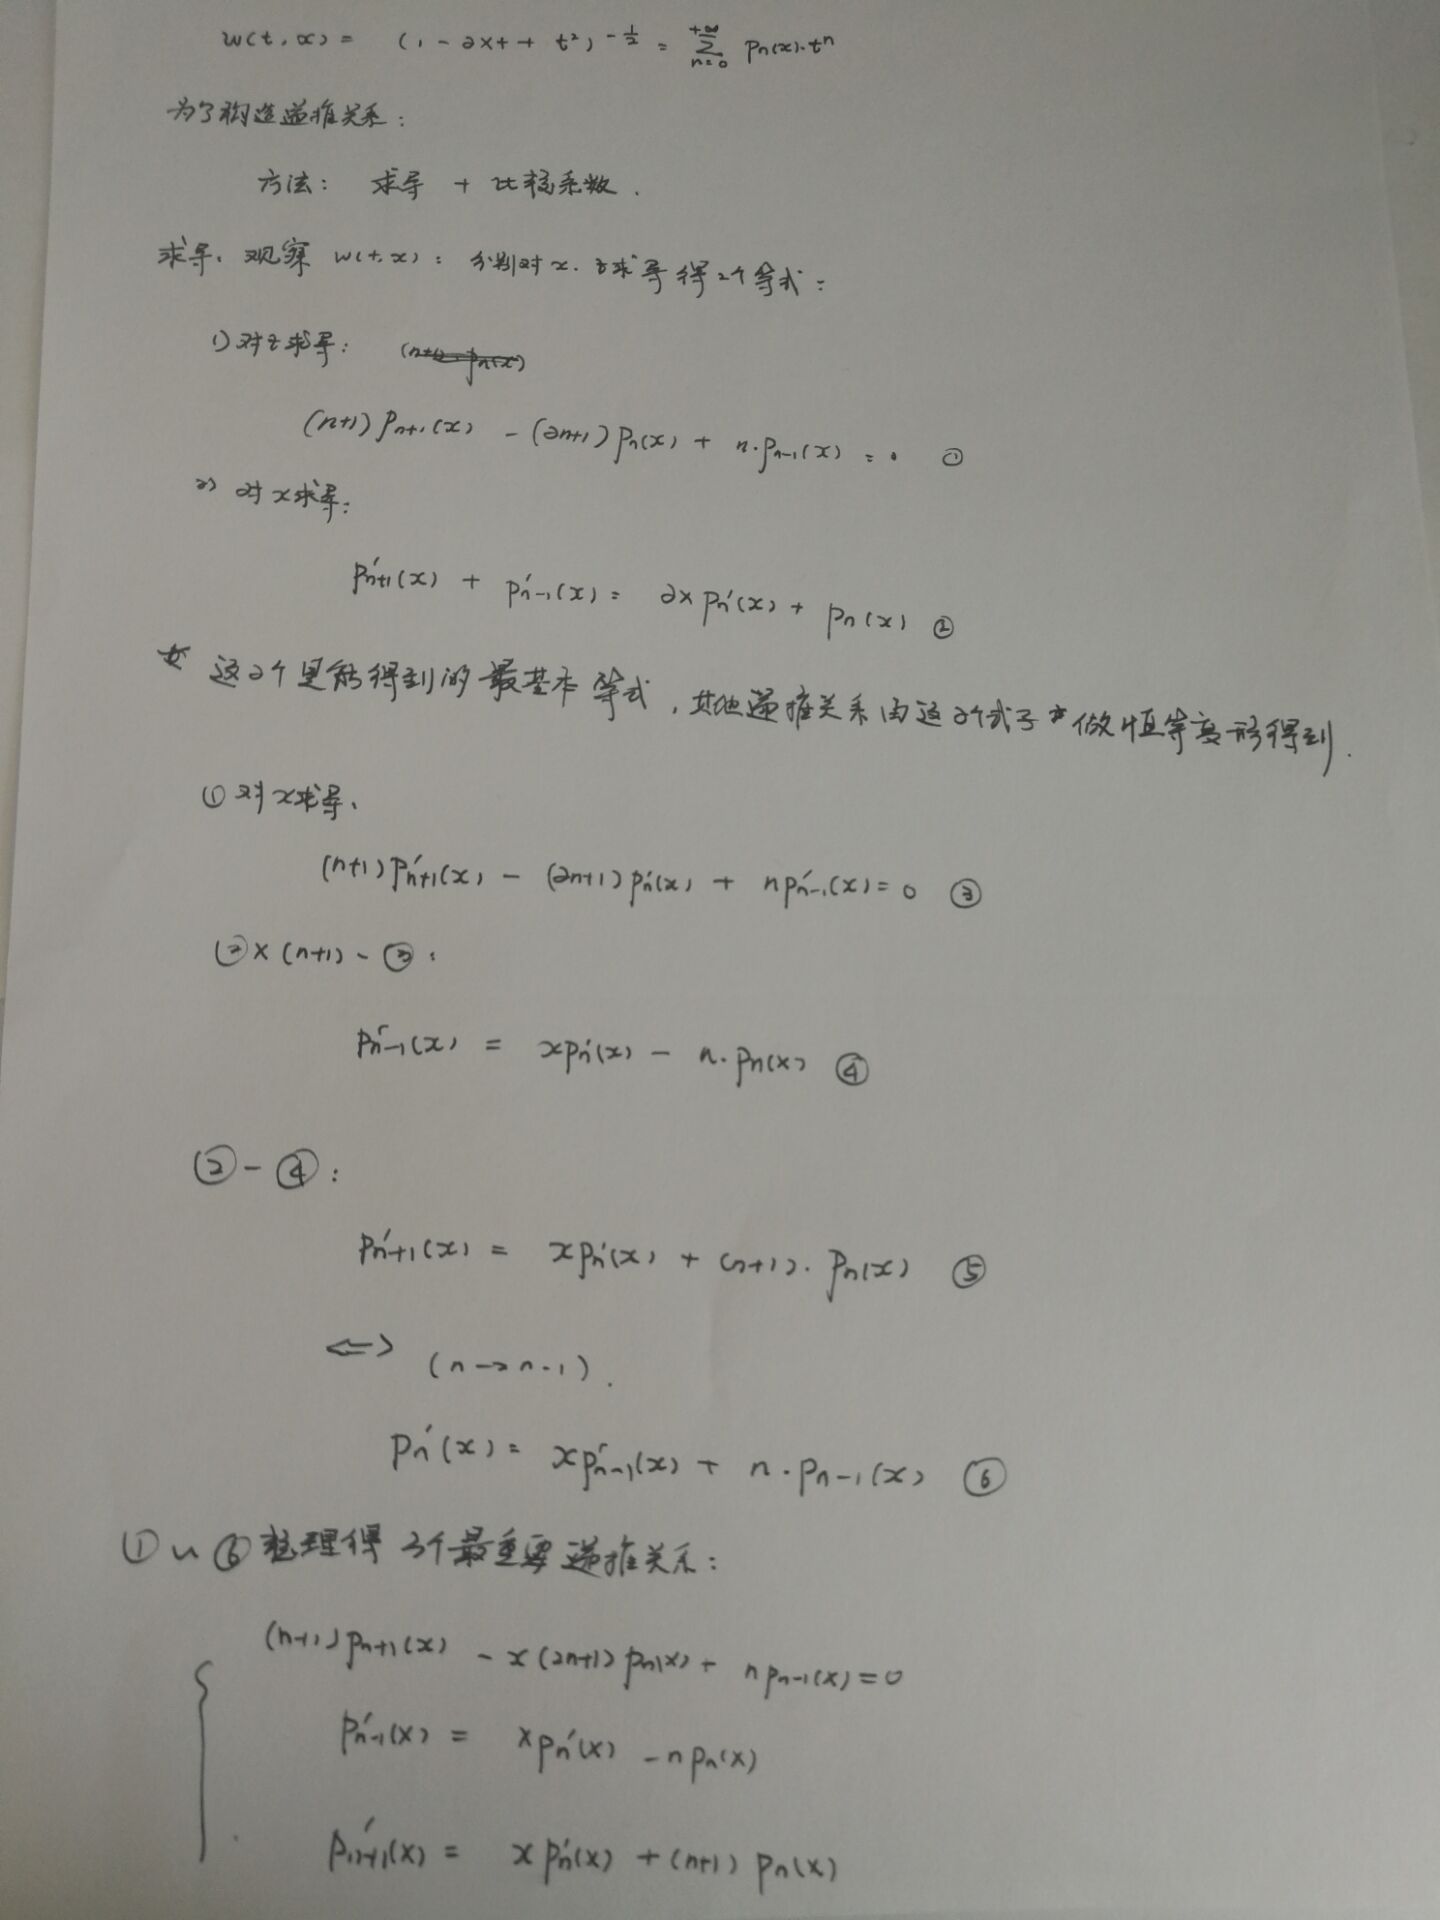 w(t,x) = (1-2xt+t²)^{-1/2} = Σ_{n=0}^{+∞} pₙ(x)·tⁿ
为了构造递推关系:
方法: 求导 + 比较系数.
求导, 观察 w(t,x): 分别对x.t求导得2个等式:
1) 对t求导: (n+1)pₙ(x)
(n+1)pₙ₊₁(x) - (2n+1)pₙ(x) + n·pₙ₋₁(x) = 0 ①
2) 对x求导:
p'ₙ₊₁(x) + p'ₙ₋₁(x) = 2xpₙ'(x) + pₙ(x) ②
☆ 这2个是能得到的最基本等式, 其他递推关系由这2个式子做恒等变形得到.
① 对x求导,
(n+1)p'ₙ₊₁(x) - (2n+1)pₙ'(x) + np'ₙ₋₁(x) = 0 ③
②×(n+1) - ③:
p'ₙ₋₁(x) = xpₙ'(x) - n·pₙ(x) ④
② - ④:
p'ₙ₊₁(x) = xpₙ'(x) + (n+1)·pₙ(x) ⑤
⇔ (n→n-1).
pₙ'(x) = xp'ₙ₋₁(x) + n·pₙ₋₁(x) ⑥
①~⑥整理得 3个最重要递推关系:
(n+1)pₙ₊₁(x) - x(2n+1)pₙ(x) + npₙ₋₁(x) = 0
p'ₙ₋₁(x) = xpₙ'(x) - npₙ(x)
p'ₙ₊₁(x) = xpₙ'(x) + (n+1)pₙ(x)